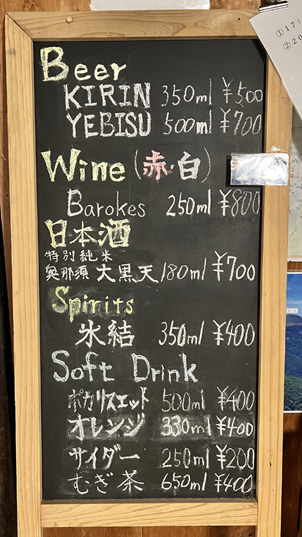 Beer
KIRIN 350ml ¥500
YEBISU 500ml ¥700
Wine (赤・白)
Barokes 250ml ¥800
日本酒
特別純米
奥那須 大黒天 180ml ¥700
Spirits
氷結 350ml ¥400
Soft Drink
ポカリスエット 500ml ¥400
オレンジ 330ml ¥400
サイダー 250ml ¥200
むぎ茶 650ml ¥400
①17:
②20